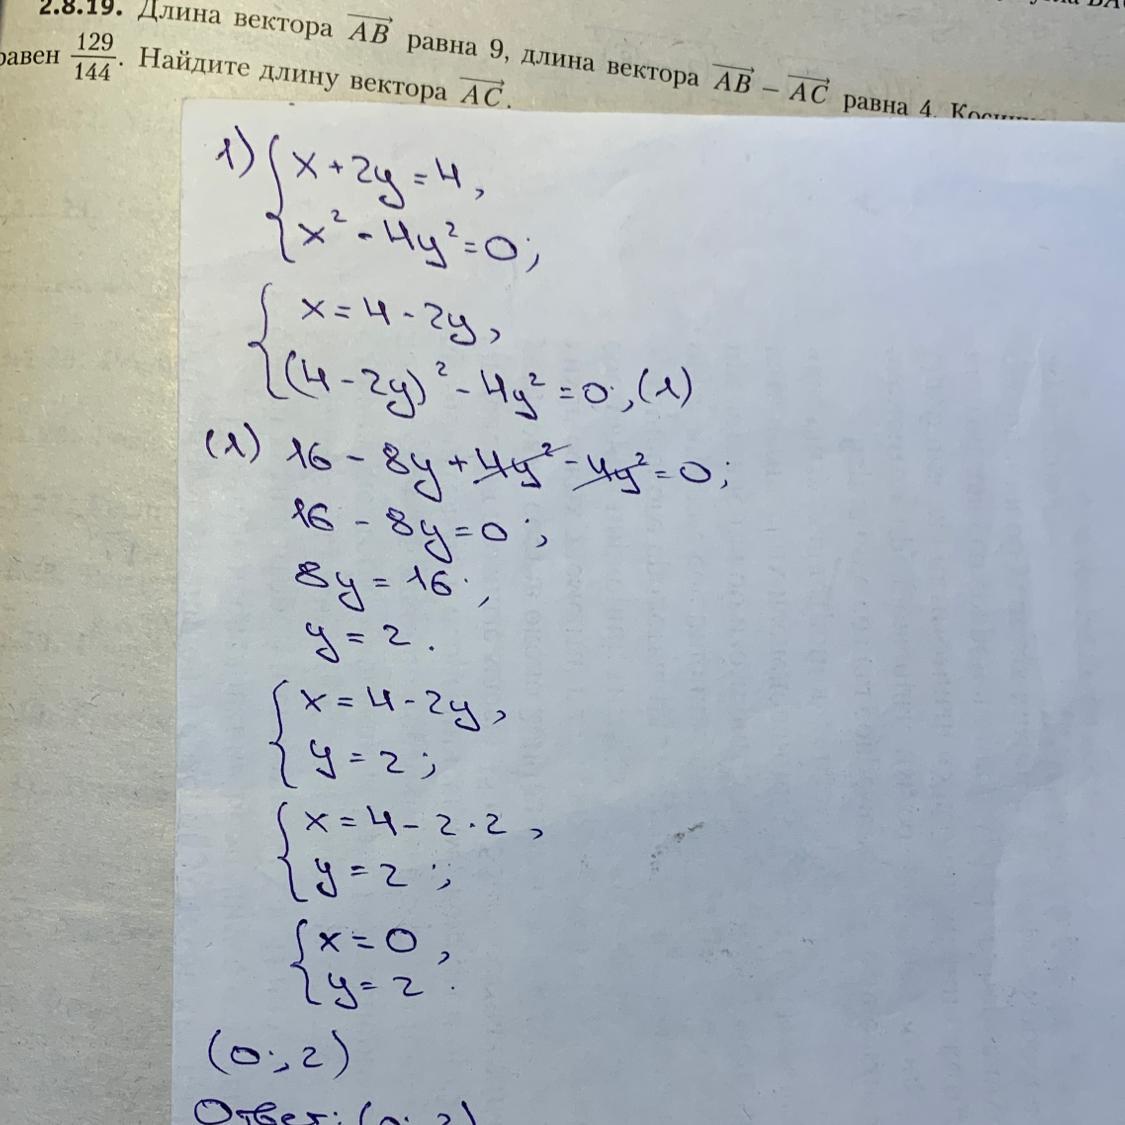 2.8.19. Длина вектора AB равна 9, длина вектора AB − AC равна 4.
равен 129/144. Найдите длину вектора AC.
1) { x + 2y = 4,
x² - 4y² = 0;
{ x = 4 - 2y,
(4 - 2y)² - 4y² = 0; (1)
(1) 16 - 8y + 4y² - 4y² = 0;
16 - 8y = 0;
8y = 16;
y = 2.
{ x = 4 - 2y,
y = 2;
{ x = 4 - 2·2,
y = 2;
{ x = 0,
y = 2.
(0; 2)
Ответ: (0; 2)